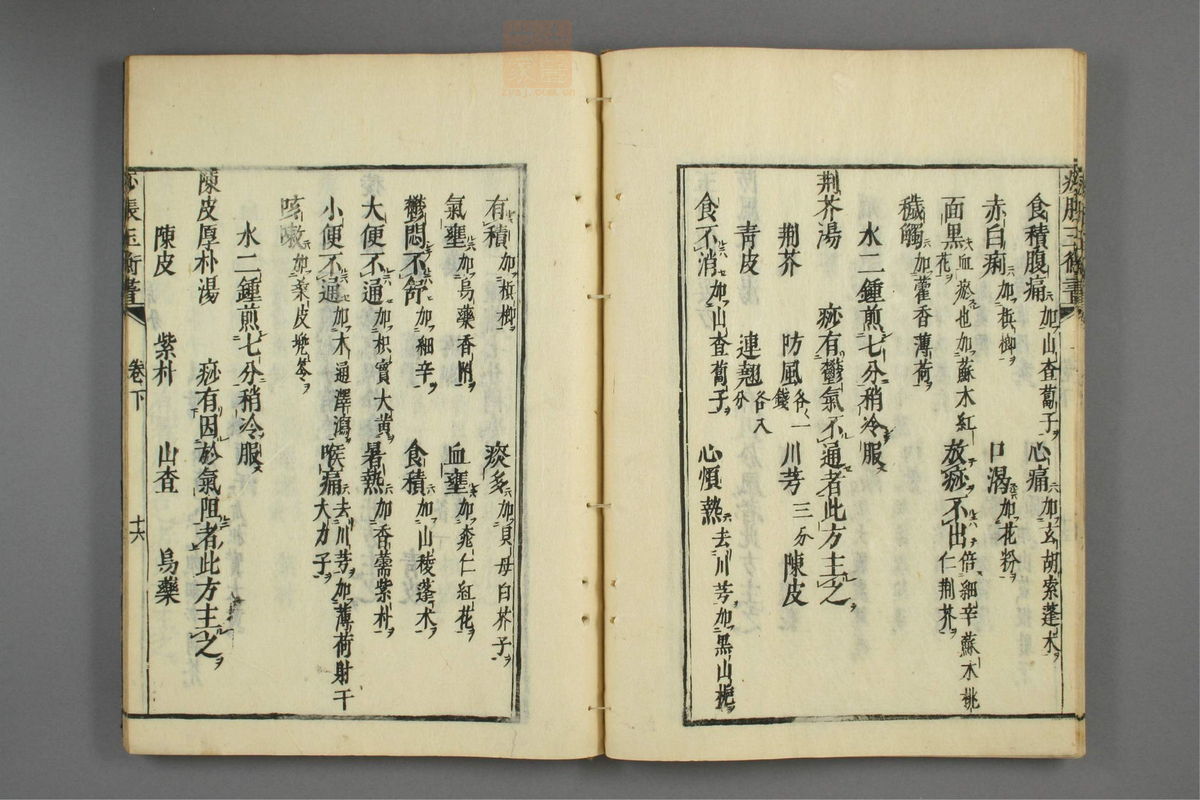 痧脹玉衡書
食積腹痛加山查蔔子 心痛加玄胡索蓬朮
赤白痢加梹榔 口渴加花粉
面黑血瘀也加蘇木紅花 放痧不出倍細辛蘇木桃仁荆芥
穢觸加藿香薄荷
水二鍾煎七分稍冷服
荆芥湯 痧有鬱氣不通者此方主之
荆芥 防風各一錢 川芎三分 陳皮
青皮 連翹各八分
食不消加山查蔔子 心煩熱去川芎加黑山梔
有積加梹榔 痰多加貝母白芥子
氣壅加烏藥香附 血壅加桃仁紅花
鬱悶不舒加細辛 食積加山稜蓬朮
大便不通加枳實大黄 暑熱加香薷紫朴
小便不通加木通澤瀉 喉痛去川芎加薄荷射干大力子
咳嗽加桑皮兜苓
水二鍾煎七分稍冷服
陳皮厚朴湯 痧有因於氣阻者此方主之
陳皮 紫朴 山查 烏藥
痧脹玉衡書 卷下 十六